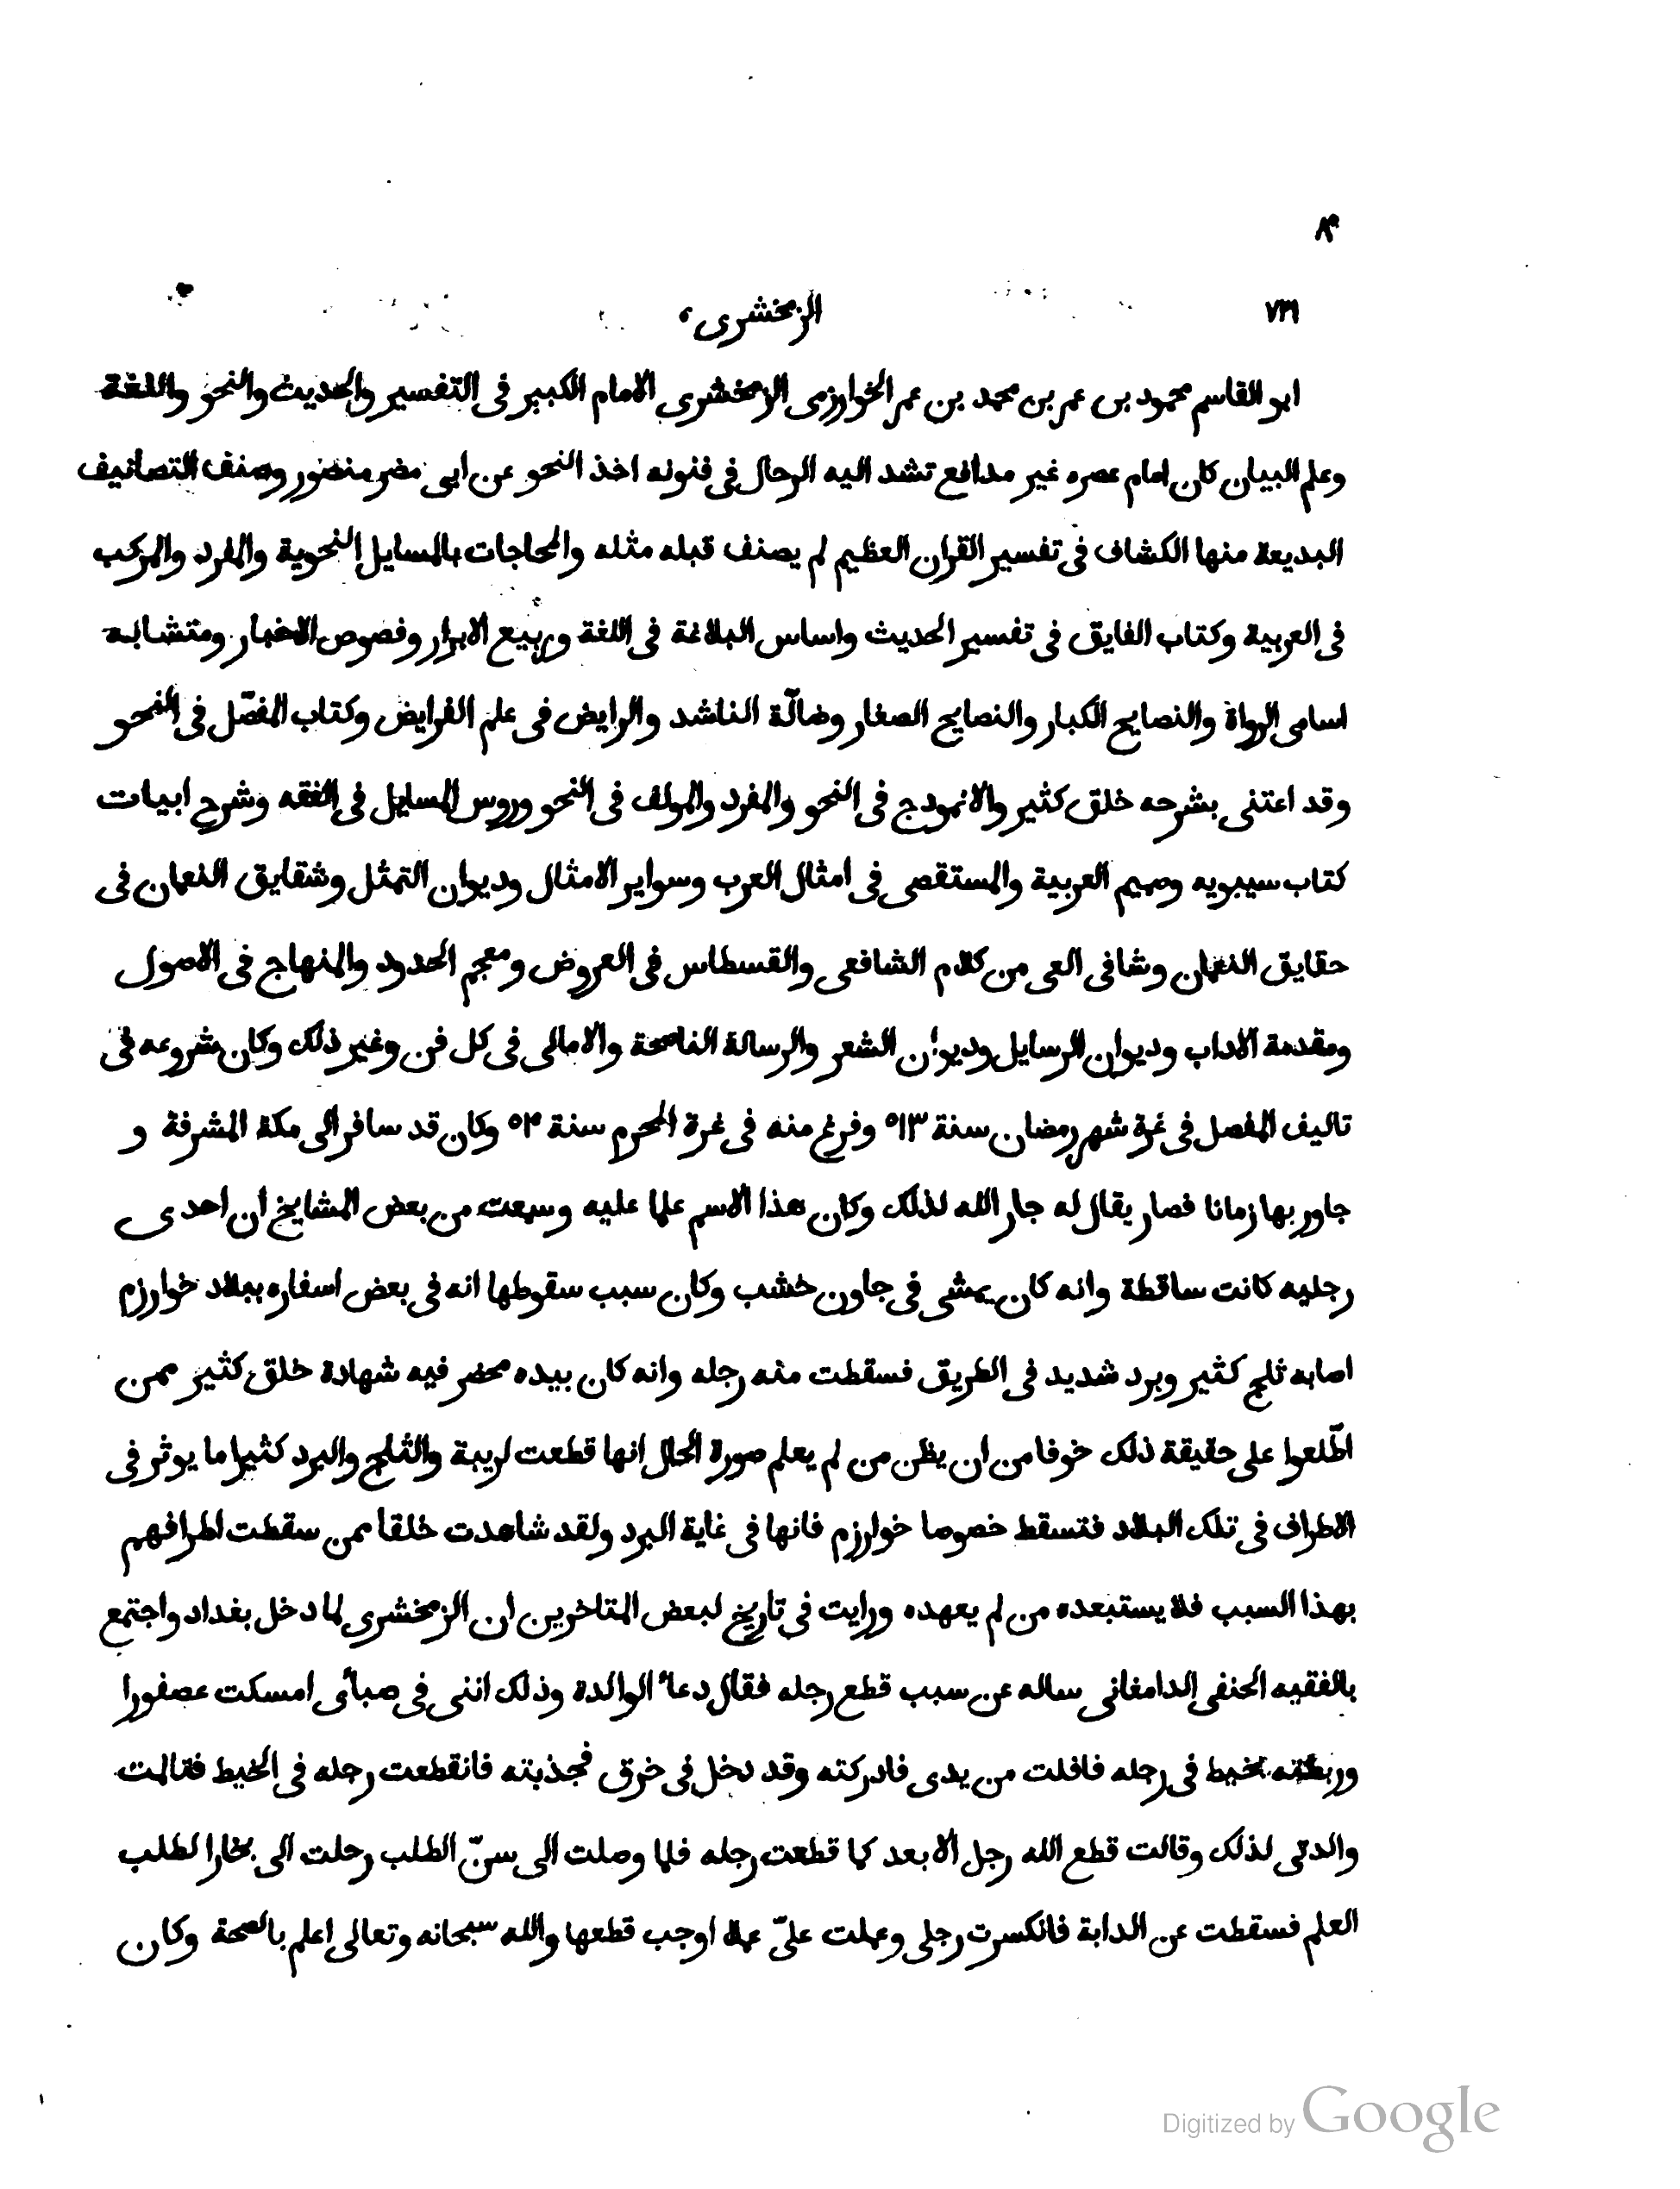 ٨٩
٧٢١
الزمخشرى ،
ابو القاسم محمود بن عمر بن محمد بن عمر الخوارزمى الزمخشرى الامام الكبير فى التفسير والحديث والنحو واللغة
وعلم البيان كان امام عصره غير مدافع تشد اليه الرحال فى فنونه اخذ النحو عن ابى مضر منصور وصنف التصانيف
البديعة منها الكشاف فى تفسير القران العظيم لم يصنف قبله مثله والمحاجات بالمسايل النحوية والمفرد والمركب
فى العربية وكتاب الفايق فى تفسير الحديث واساس البلاغة فى اللغة وربيع الابرار وفصوص الاخبار ومتشابه
اسامى الرواة والنصايح الكبار والنصايح الصغار وضالّة الناشد والرايض فى علم الفرايض وكتاب المفصّل فى النحو
وقد اعتنى بشرحه خلق كثير والانمودج فى النحو والمفرد والمولف فى النحو وروس المسايل فى الفقه وشرح ابيات
كتاب سيبويه وصميم العربية والمستقصى فى امثال العرب وسواير الامثال وديوان التمثل وشقايق النعمان فى
حقايق النعمان وشافى العى من كلام الشافعى والقسطاس فى العروض ومعجم الحدود والمنهاج فى الاصول
ومقدمة الاداب وديوان الرسايل وديوان الشعر والرسالة الناصحة والامالى فى كل فن وغير ذلك وكان شروعه فى
تاليف المفصل فى غرة شهر رمضان سنة ٥١٣ وفرغ منه فى غرة المحرم سنة ٥١۴ وكان قد سافر الى مكة المشرفة و
جاور بها زمانا فصار يقال له جار الله لذلك وكان هذا الاسم علما عليه وسمعت من بعض المشايخ ان احدى
رجليه كانت ساقطة وانه كان يمشى فى جاون خشب وكان سبب سقوطها انه فى بعض اسفاره ببلاد خوارزم
اصابه ثلج كثير وبرد شديد فى الطريق فسقطت منه رجله وانه كان بيده محضر فيه شهادة خلق كثير ممن
اطّلعوا على حقيقة ذلك خوفا من ان يظن من لم يعلم صورة الحال انها قطعت لريبة والثلج والبرد كثيرا ما يوثر فى
الاطراف فى تلك البلاد فتسقط خصوصا خوارزم فانها فى غاية البرد ولقد شاهدت خلقا ممن سقطت اطرافهم
بهذا السبب فلا يستبعده من لم يعهده ورايت فى تاريخ لبعض المتاخرين ان الزمخشرى لما دخل بغداد واجتمع
بالفقيه الحنفى الدامغانى ساله عن سبب قطع رجله فقال دعاء الوالدة وذلك اننى فى صبائى امسكت عصفورا
وربطته بخيط فى رجله فافلت من يدى فادركته وقد دخل فى خرق فجذبته فانقطعت رجله فى الخيط فتالمت
والدتى لذلك وقالت قطع الله رجل الابعد كما قطعت رجله فلما وصلت الى سنّ الطلب رحلت الى بخارا لطلب
العلم فسقطت عن الدابة فانكسرت رجلى وعملت علىّ عملا اوجب قطعها والله سبحانه وتعالى اعلم بالصحة وكان
Digitized by Google